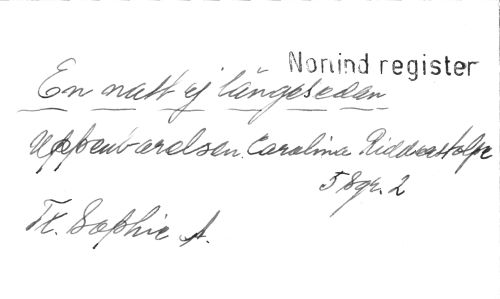 Nonind register
En natt ej längesedan
Uppenbarelsen. Carolina Ridderstolpe
5 Sgr. 2
Tr. Sophie A.